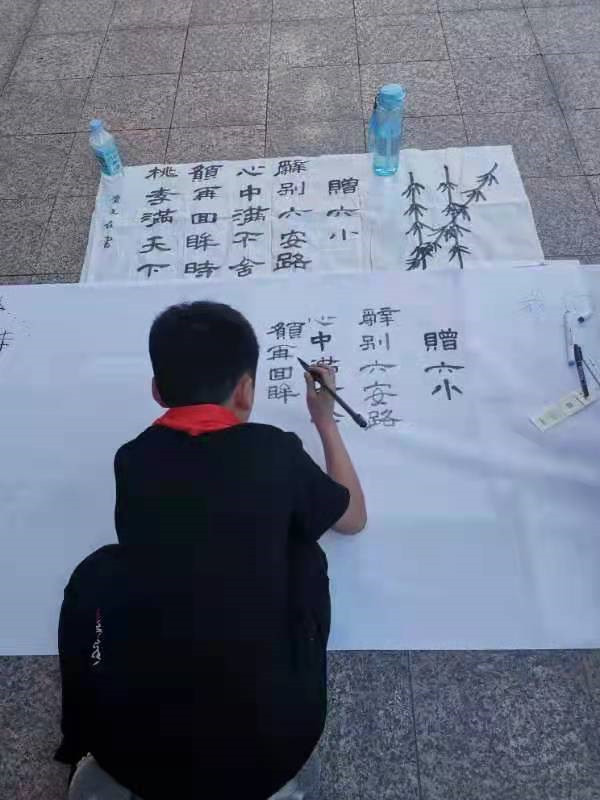 贈六小
辭别六安路
心中滿不舍
願再回眸時
桃李滿天下
贈六小
辭别六安路
心中滿
願再回眸